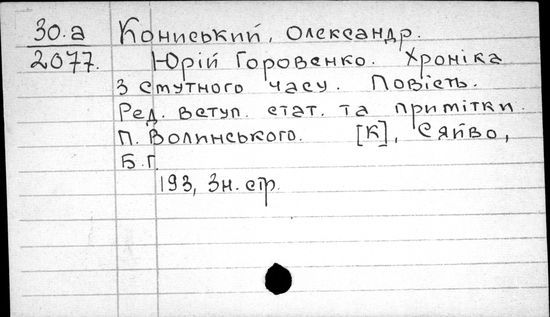 30.а Кониський, Олександр.
2077. Юрій Горовенко. Хроніка
з смутного часу. Повість.
Ред. вступ. стат. та примітки
П. Волинського. [К], Сяйво,
Б.г.
193, 3н. стр.